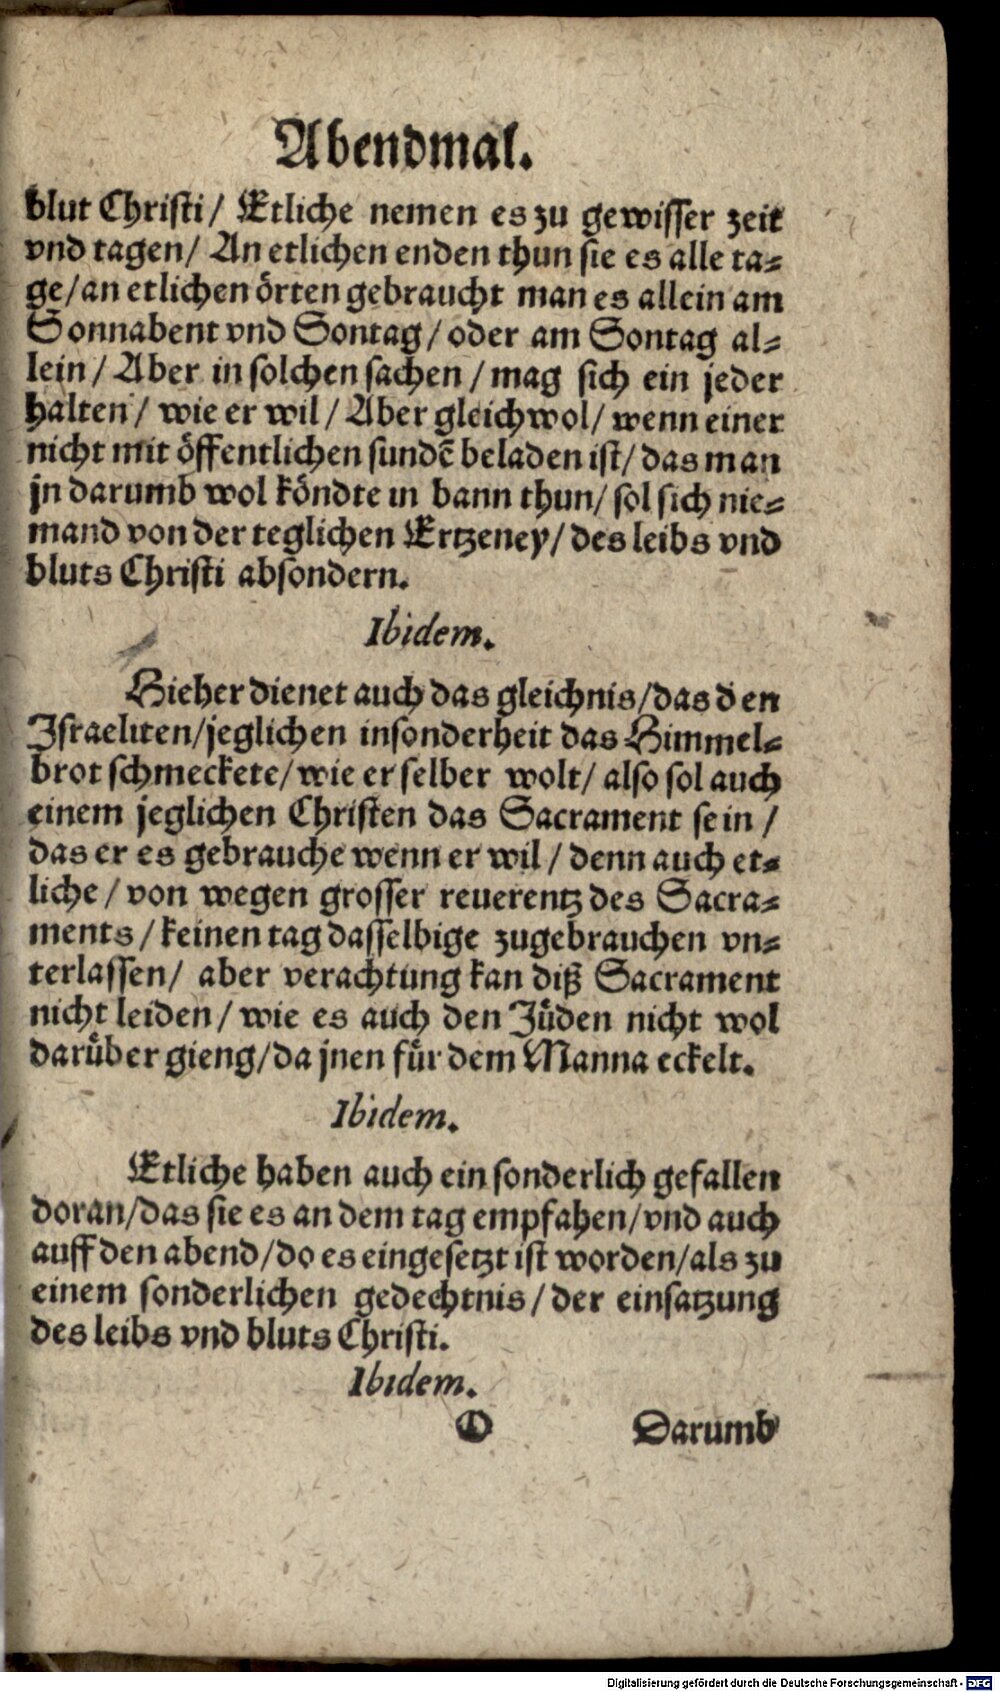 Abendmal.
blut Christi/ Etliche nemen es zu gewisser zeit
vnd tagen/ An etlichen enden thun sie es alle ta⸗
ge/an etlichen örten gebraucht man es allein am
Sonnabent vnd Sontag/oder am Sontag al⸗
lein/ Aber in solchen sachen/mag sich ein jeder
halten/ wie er wil/Aber gleichwol/ wenn einer
nicht mit öffentlichen sundē beladen ist/das man
jn darumb wol köndte in bann thun/ sol sich nie⸗
mand von der teglichen Ertzeney/des leibs vnd
bluts Christi absondern.
Ibidem.
Hieher dienet auch das gleichnis/das den
Israeliten/jeglichen insonderheit das Himmel⸗
brot schmeckete/wie er selber wolt/ also sol auch
einem jeglichen Christen das Sacrament sein/
das er es gebrauche wenn er wil/denn auch et⸗
liche/von wegen grosser reuerentz des Sacra⸗
ments/keinen tag dasselbige zugebrauchen vn⸗
terlassen/ aber verachtung kan diß Sacrament
nicht leiden/wie es auch den Jüden nicht wol
darüber gieng/da jnen für dem Manna eckelt.
Ibidem.
Etliche haben auch ein sonderlich gefallen
doran/das sie es an dem tag empfahen/vnd auch
auff den abend/do es eingesetzt ist worden/als zu
einem sonderlichen gedechtnis/der einsatzung
des leibs vnd bluts Christi.
Ibidem.
O Darumb
Digitalisierung gefördert durch die Deutsche Forschungsgemeinschaft - DFG